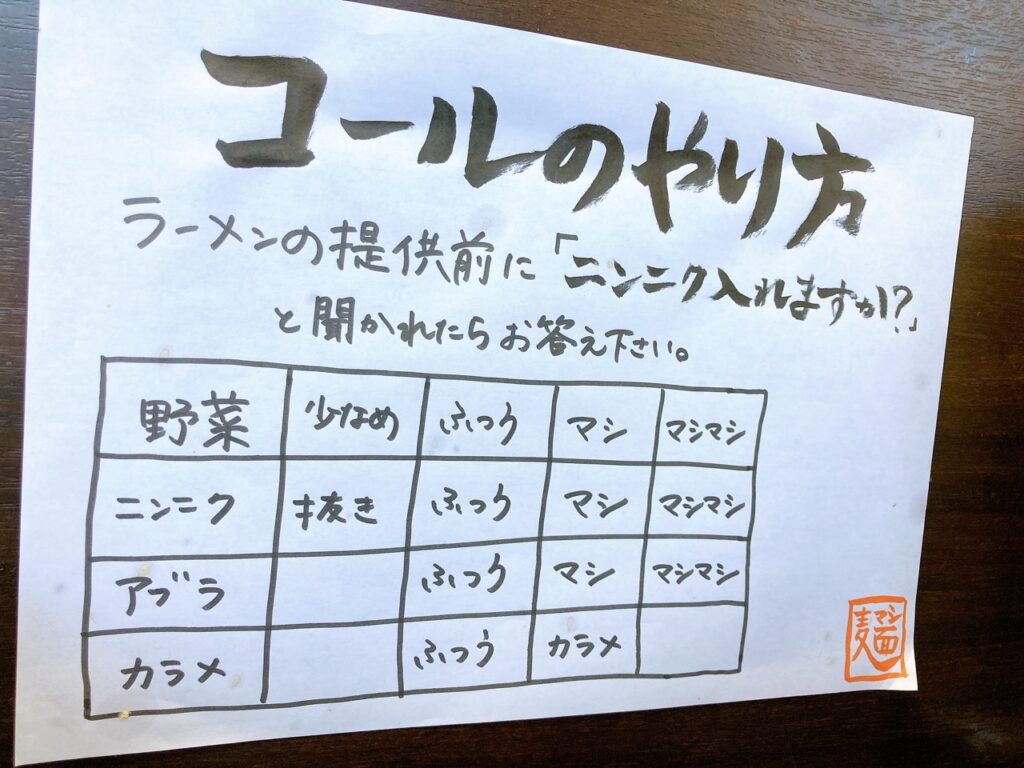 コールのやり方
ラーメンの提供前に「ニンニク入れますか!?」
と聞かれたらお答え下さい。
野菜 少なめ ふつう マシ マシマシ
ニンニク 抜き ふつう マシ マシマシ
アブラ ふつう マシ マシマシ
カラメ ふつう カラメ
マシ
麺